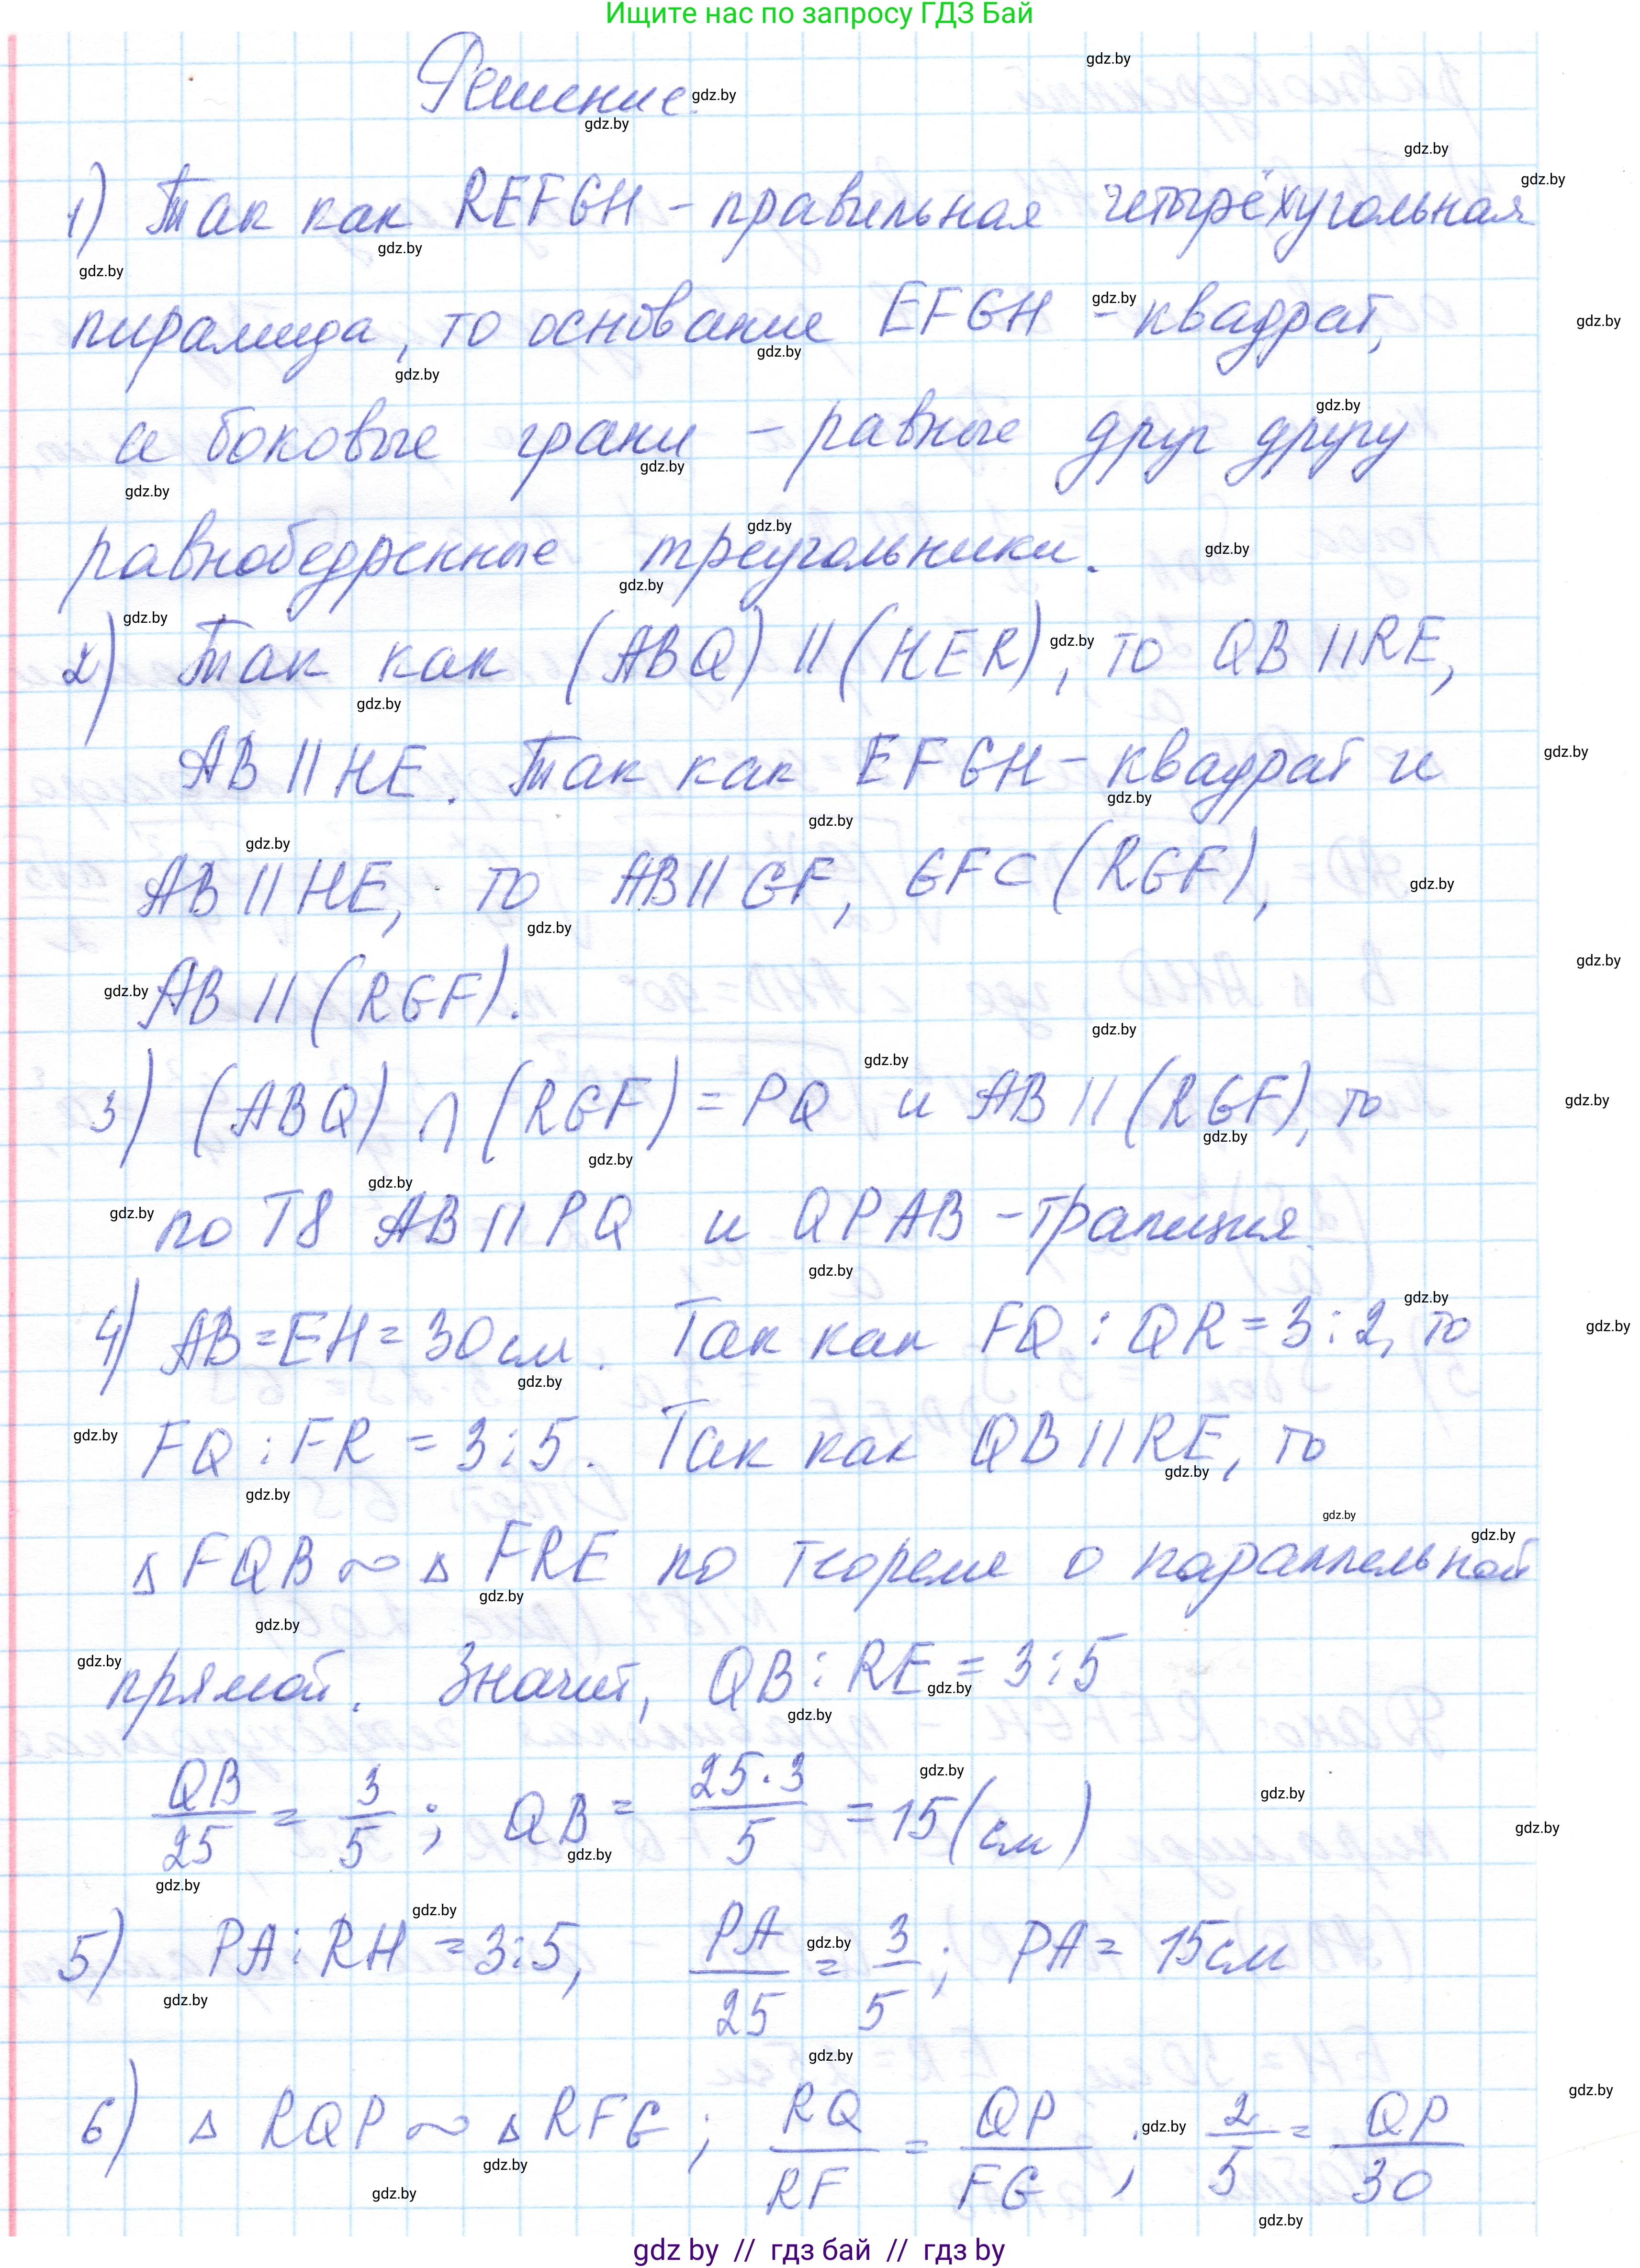 Ищите нас по запросу ГДЗ Бай
Решение.
1) Так как REFGH - правильная четырёхугольная
пирамида, то основание EFGH - квадрат,
а боковые грани - равные друг другу
равнобедренные треугольники.
2) Так как (ABQ) || (HER), то QB || RE,
AB || HE. Так как EFGH - квадрат и
AB || HE, то AB || GF, GF ⊂ (RGF),
AB || (RGF).
3) (ABQ) ∩ (RGF) = PQ и AB || (RGF), то
по Т8 AB || PQ и QPAB - трапиция.
4) AB = EH = 30 см. Так как FQ : QR = 3 : 2, то
FQ : FR = 3 : 5. Так как QB || RE, то
Δ FQB ∾ Δ FRE по теореме о параллельной
прямой. Значит, QB : RE = 3 : 5
QB/25 = 3/5; QB = 25·3/5 = 15 (см)
5) PA : RH = 3 : 5, PA/25 = 3/5; PA = 15 см
6) Δ RQP ∾ Δ RFG; RQ/RF = QP/FG; 2/5 = QP/30
gdz by // гдз бай // гдз by